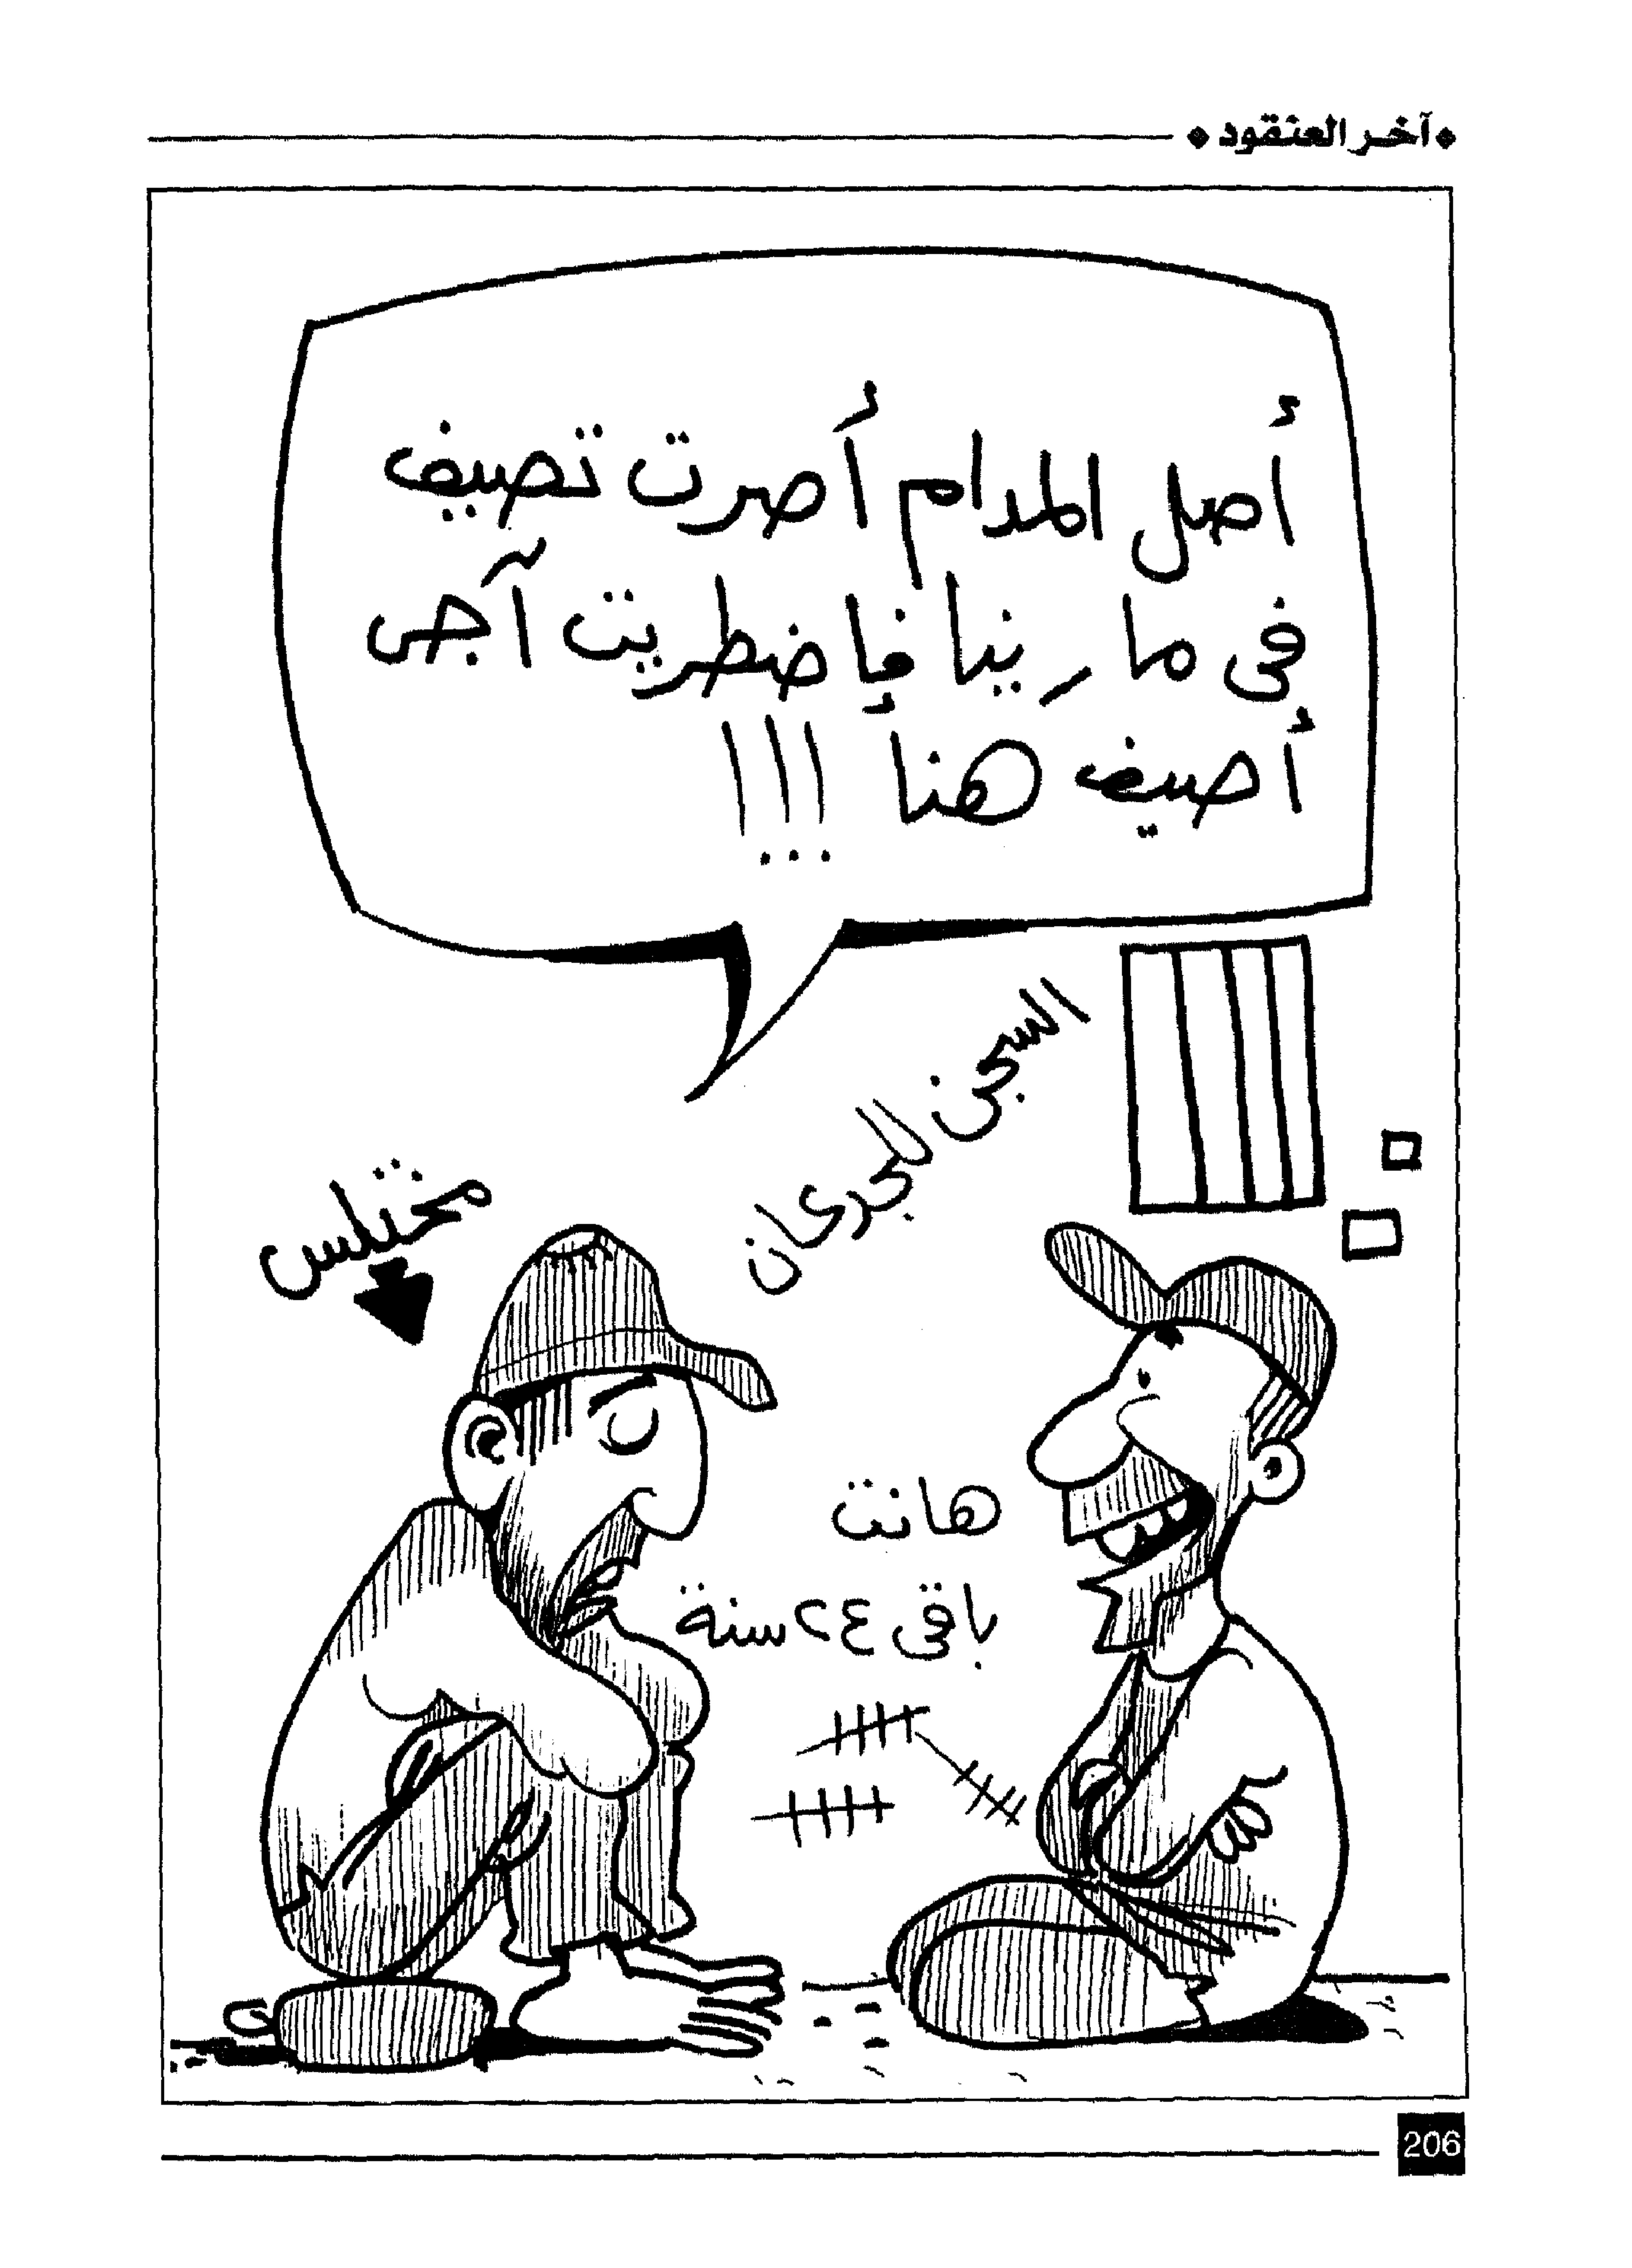 آخر العنقود
أصل المدام أصرت تصيف
فى مارينا فإضطريت آجى
أصيف هنا !!!
السجن للجدعان
مختلس
هانت
باقى ٢٤ سنة
206